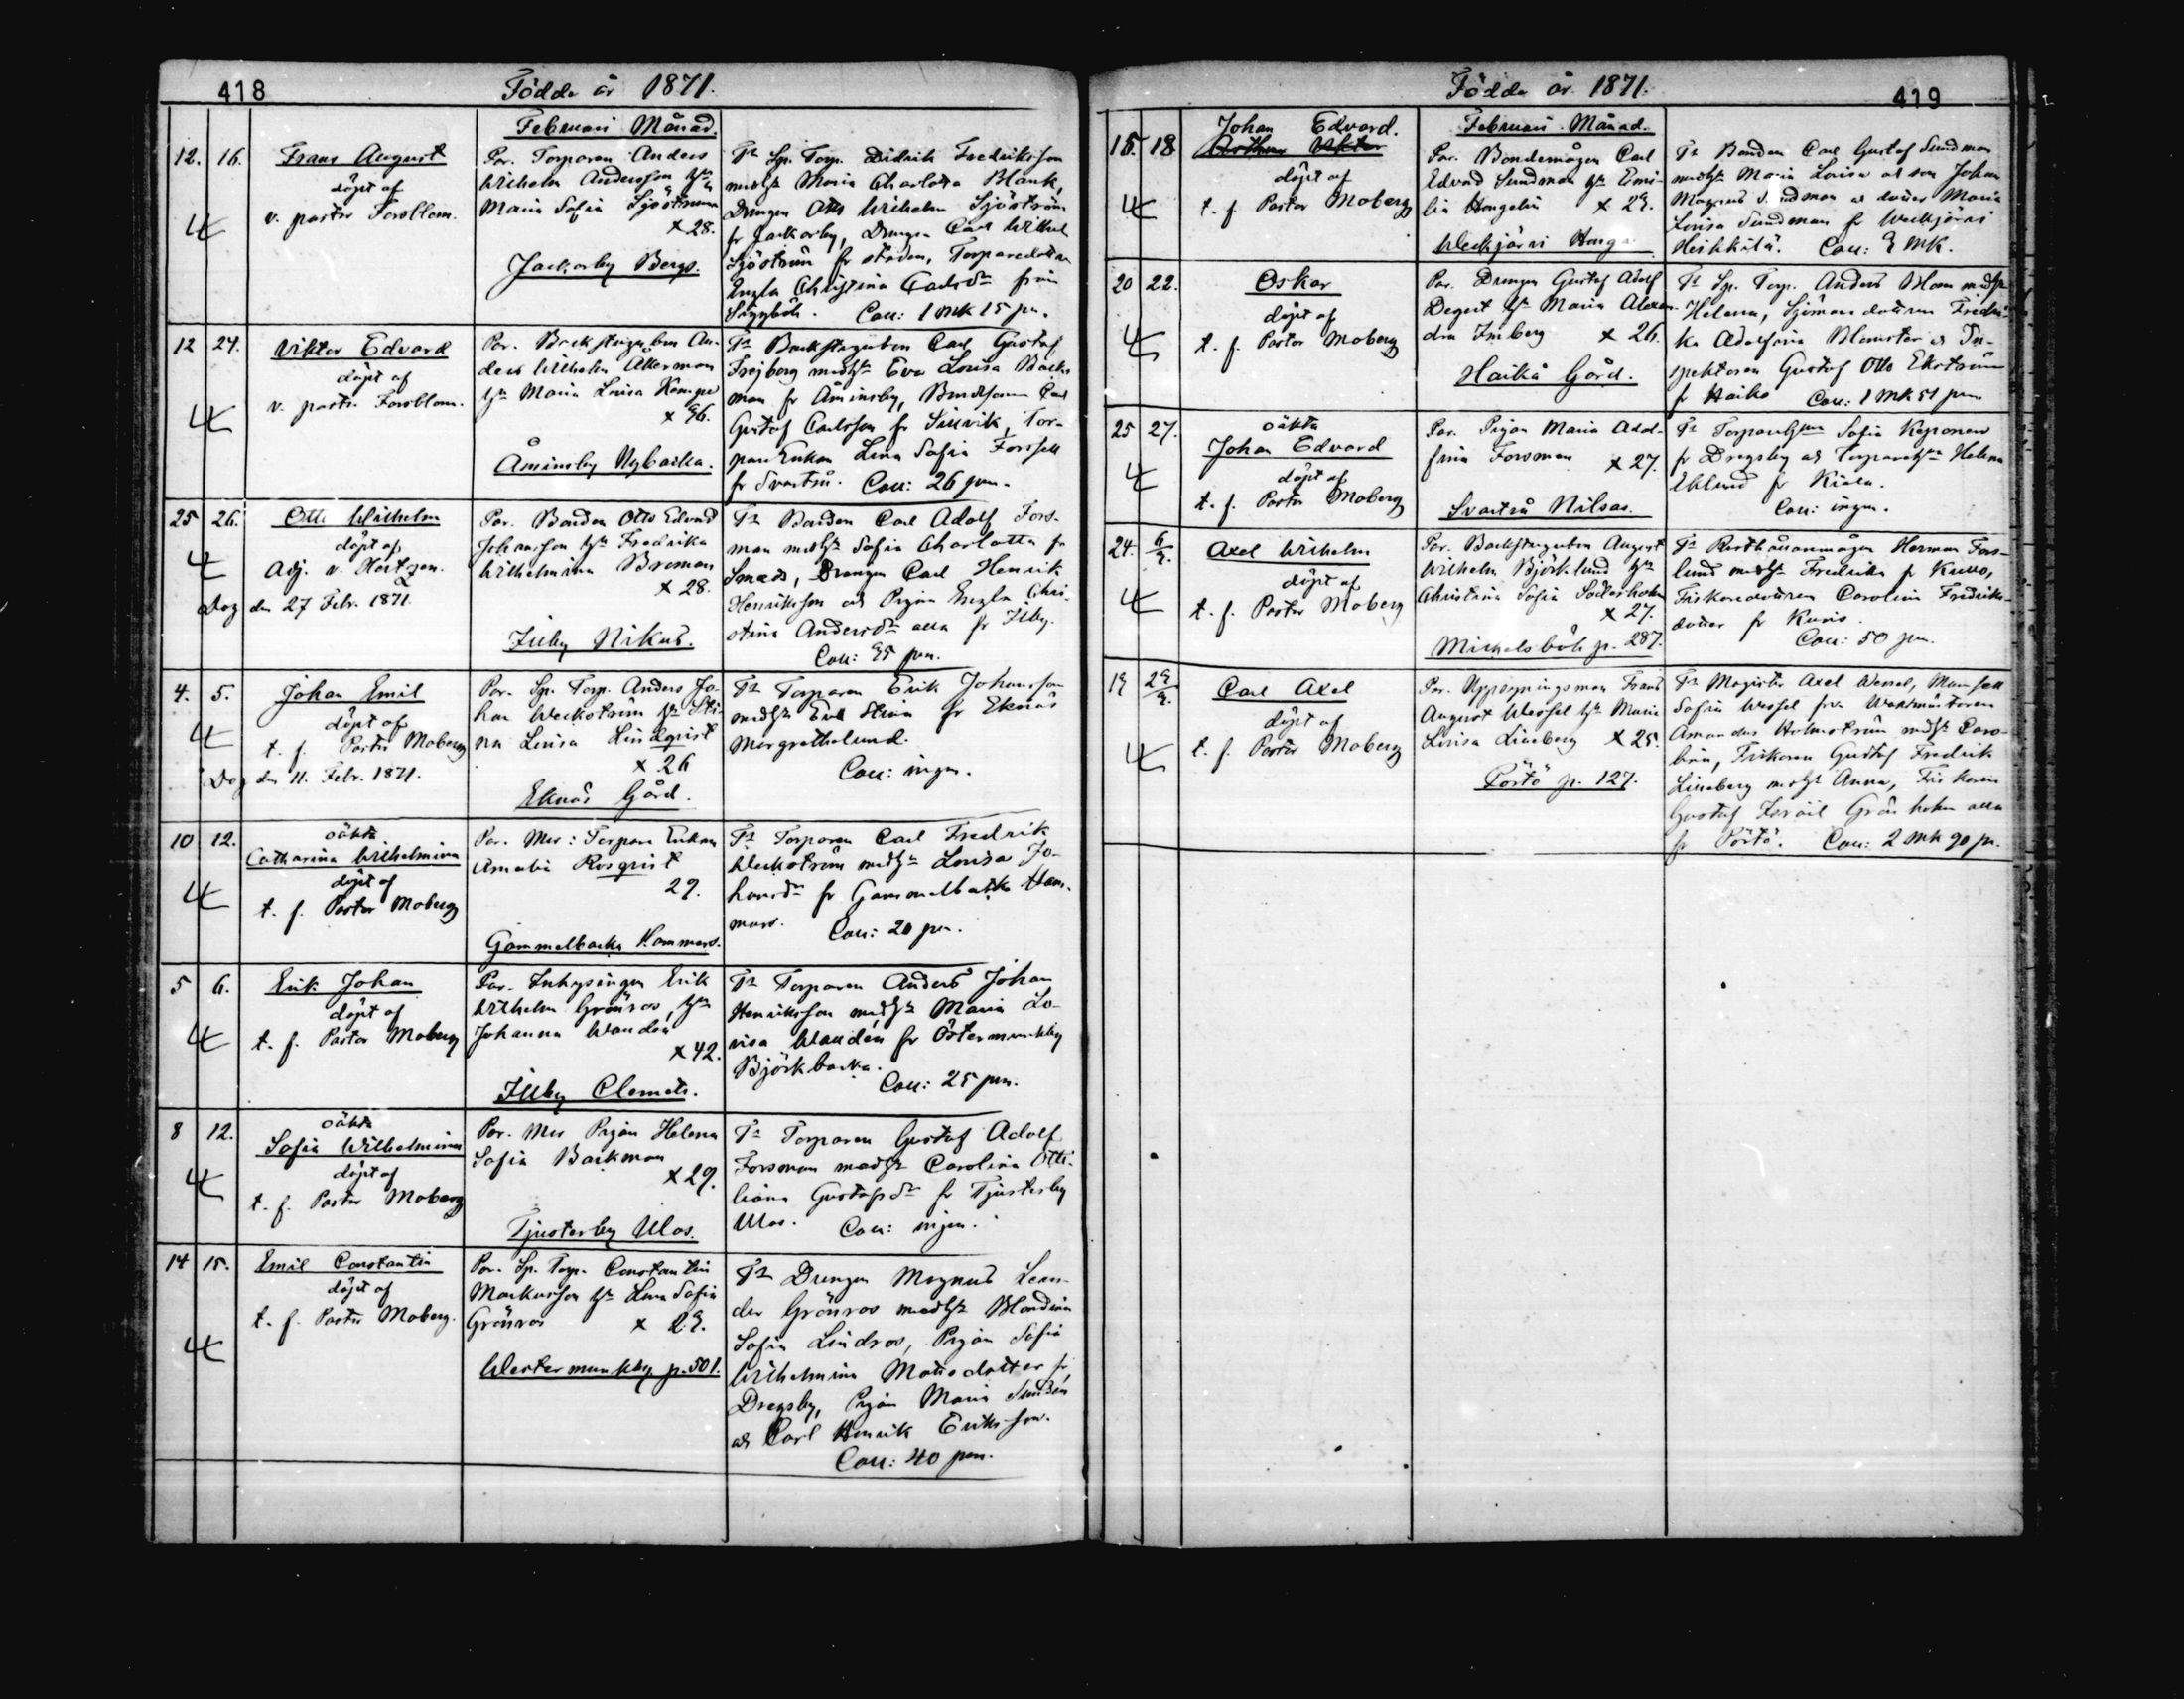 418
Födde år 1871.
Februari Månad.
12. 16.
Frans August
döpt af
v. pastor Forsblom.
Par. Torparen Anders
Wilhelm Andersson h:n
Maria Sofia Sjöström
x 28.
Jackarby Bergs.
Tr Sp. Torp. Didrik Fredriksson
med h:n Maria Charlotta Blank,
Drengen Otto Wilhelm Sjöström
fr Jackarby, Drengen Carl Wilhel
Sjöström fr staden, Torparedottren
Christina Carlsdr från
Coll: 1 mk 15 pn.
12 24.
Viktor Edvard
döpt af
v. pastr. Forsblom.
Par. Backstugubon An-
ders Wilhelm Åkerman
h:n Maria Lovisa
x 36.
Åminsby Nybacka.
Tr Backstugubon Carl Gustaf
Frejborg med h:n Eva Lovisa Back-
man fr Åminsby, Bondsonen Carl
Gustaf Carlsson fr Sillvik, Tor-
pare Enkan Lena Sofia Forssell
fr Svartså. Coll: 26 pen.
25 26.
Otto Wilhelm
döpt af
Adj. v. Hertzen.
Dog den 27 Febr. 1871.
Par. Bonden Otto Edvard
Johansson h:n Fredrika
Wilhelmina Broman
x 28.
Illby Nikus.
Tr Bonden Carl Adolf Fors-
man med h:n Sofia Charlotta fr
Smeds, Drengen Carl Henrik
Henriksson och Pigan Chri-
stina Andersdr alla fr Illby.
Coll: 35 pen.
4. 5.
Johan Emil
döpt af
t. f. Pastor Moberg
Dog den 11. Febr. 1871.
Par. Sp. Torp. Anders Jo-
han Weckström h:n Sti-
na Lovisa Lindqvist
x 26
Eknäs Gård.
Tr Torparen Erik Johansson
med h:n Eva Stina fr Eknäs
Margrethelund.
Coll: ingen.
10 12.
oäkta
Catharina Wilhelmina
döpt af
t. f. Pastor Moberg
Par. Mor: Torpare Enkan
Amalia Rosqvist
29.
Gammelbacka Hammars.
Tr Torparen Carl Fredrik
Weckström med h:n Lovisa Jo-
hansdr fr Gammelbacka Ham-
mars. Coll: 20 pen.
5 6.
Erik Johan
döpt af
t. f. Pastor Moberg
Par. Inhysingen Erik
Wilhelm Grönroos, h:n
Johanna Wandén
x 42.
Illby Clemets.
Tr Torparen Anders Johan
Henriksson med h:n Maria Lo-
visa Wandén fr Östermunkby
Björkbacka.
Coll: 25 pen.
8 12.
oäkta
Sofia Wilhelmina
döpt af
t. f. Pastor Moberg
Par. Mor Pigan Helena
Sofia Backman
x 29.
Tjusterby Ulas.
Tr Torparen Gustaf Adolf
Forsman med h:n Carolina Otti-
liana Gustafsdr fr Tjusterby
Ulas. Coll: ingen.
14 15.
Emil Constantin
döpt af
t. f. Pastor Moberg.
Par. Sp. Torp. Constantin
Markusson h:n Lena Sofia
Grönroos x 23.
Westermunkby p. 501.
Tr Drengen Magnus Lean-
der Grönroos med h:n Blondina
Sofia Lindroos, Pigan Sofia
Wilhelmina Matsdotter fr
Dregsby, Pigan Maria Sundén
och Carl Henrik Eriksson.
Coll: 40 pen.
Födde år 1871.
419
Februari Månad.
15. 18
Johan Edvard.
döpt af
t. f. Pastor Moberg
Par. Bondemågen Carl
Edvard Sundman h:n Emi-
lia Hongelin x 23.
Weckjärvi Honga
Tr Bonden Carl Gustaf Sundman
med h:n Maria Lovisa och son Johan
Magnus Sundman o dotter Maria
Lovisa Sundman fr Weckjärvi
Heikkilä. Coll: 3 MK.
20 22.
Oskar
döpt af
t. f. Pastor Moberg
Par. Drengen Gustaf Adolf
Degert h:n Maria Alexan-
dra Friberg x 26.
Haikå Gård.
Tr Sp. Torp. Anders Blom med h:n
Helena, Sjömansdottren Fredri-
ka Adolfina Blomster o In-
spektoren Gustaf Otto Ekström
fr Haiko Coll: 1 mk 51 pen
25 27.
oäkta
Johan Edvard
döpt af
t. f. Pastor Moberg
Par. Pigan Maria Adol-
fina Forsman x 27.
Svartså Nilsas.
Tr Torpareh:n Sofia Keponen
fr Dregsby och Torpareh:n Helena
Eklund fr Kiala.
Coll: ingen.
24. 6/3.
Axel Wilhelm
döpt af
t. f. Pastor Moberg
Par. Backstugubon August
Wilhelm Björklund h:n
Christina Sofia Söderholm
x 27.
Mickelsböle p. 287.
Tr Rusthållaremågen Herman Fors-
lund med h:n Fredrika fr Kullo,
Fiskaredottren Carolina Fredriks-
dotter fr Kunis.
Coll: 50 pen.
19 23/3.
Carl Axel
döpt af
t. f. Pastor Moberg
Par. Uppsyningsman Frans
August Wessel h:n Maria
Lovisa Lineberg x 25.
Pörtö p. 127.
Tr Magister Axel Wessel, Mamsell
Sofia Wessel fr Waktmästaren
Amandus Holmström med h:n Caro-
lina, Fiskaren Gustaf Fredrik
Lineberg med h:n Anna, Fiskaren
Gustaf Israil Grönholm alla
fr Pörtö. Coll: 2 mk 90 pn.